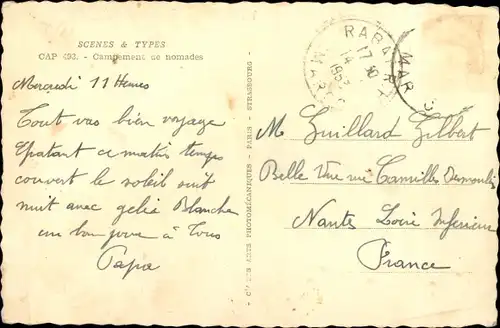 SCENES & TYPES
CAP 493. - Campement de nomades
Mercredi 11 Heures
Tout vas bien voyage
Epatant ce matin temps
couvert le soleil suit
nuit avec gelée Blanche
un bon jour à Tous
Papa
Cie DES ARTS PHOTOMÉCANIQUES - PARIS - STRASBOURG -
RABAT
17 30
MAR
M Guillard Gilbert
Belle Vue rue Camilles Desmouli
Nantes Loire Inferieur
France